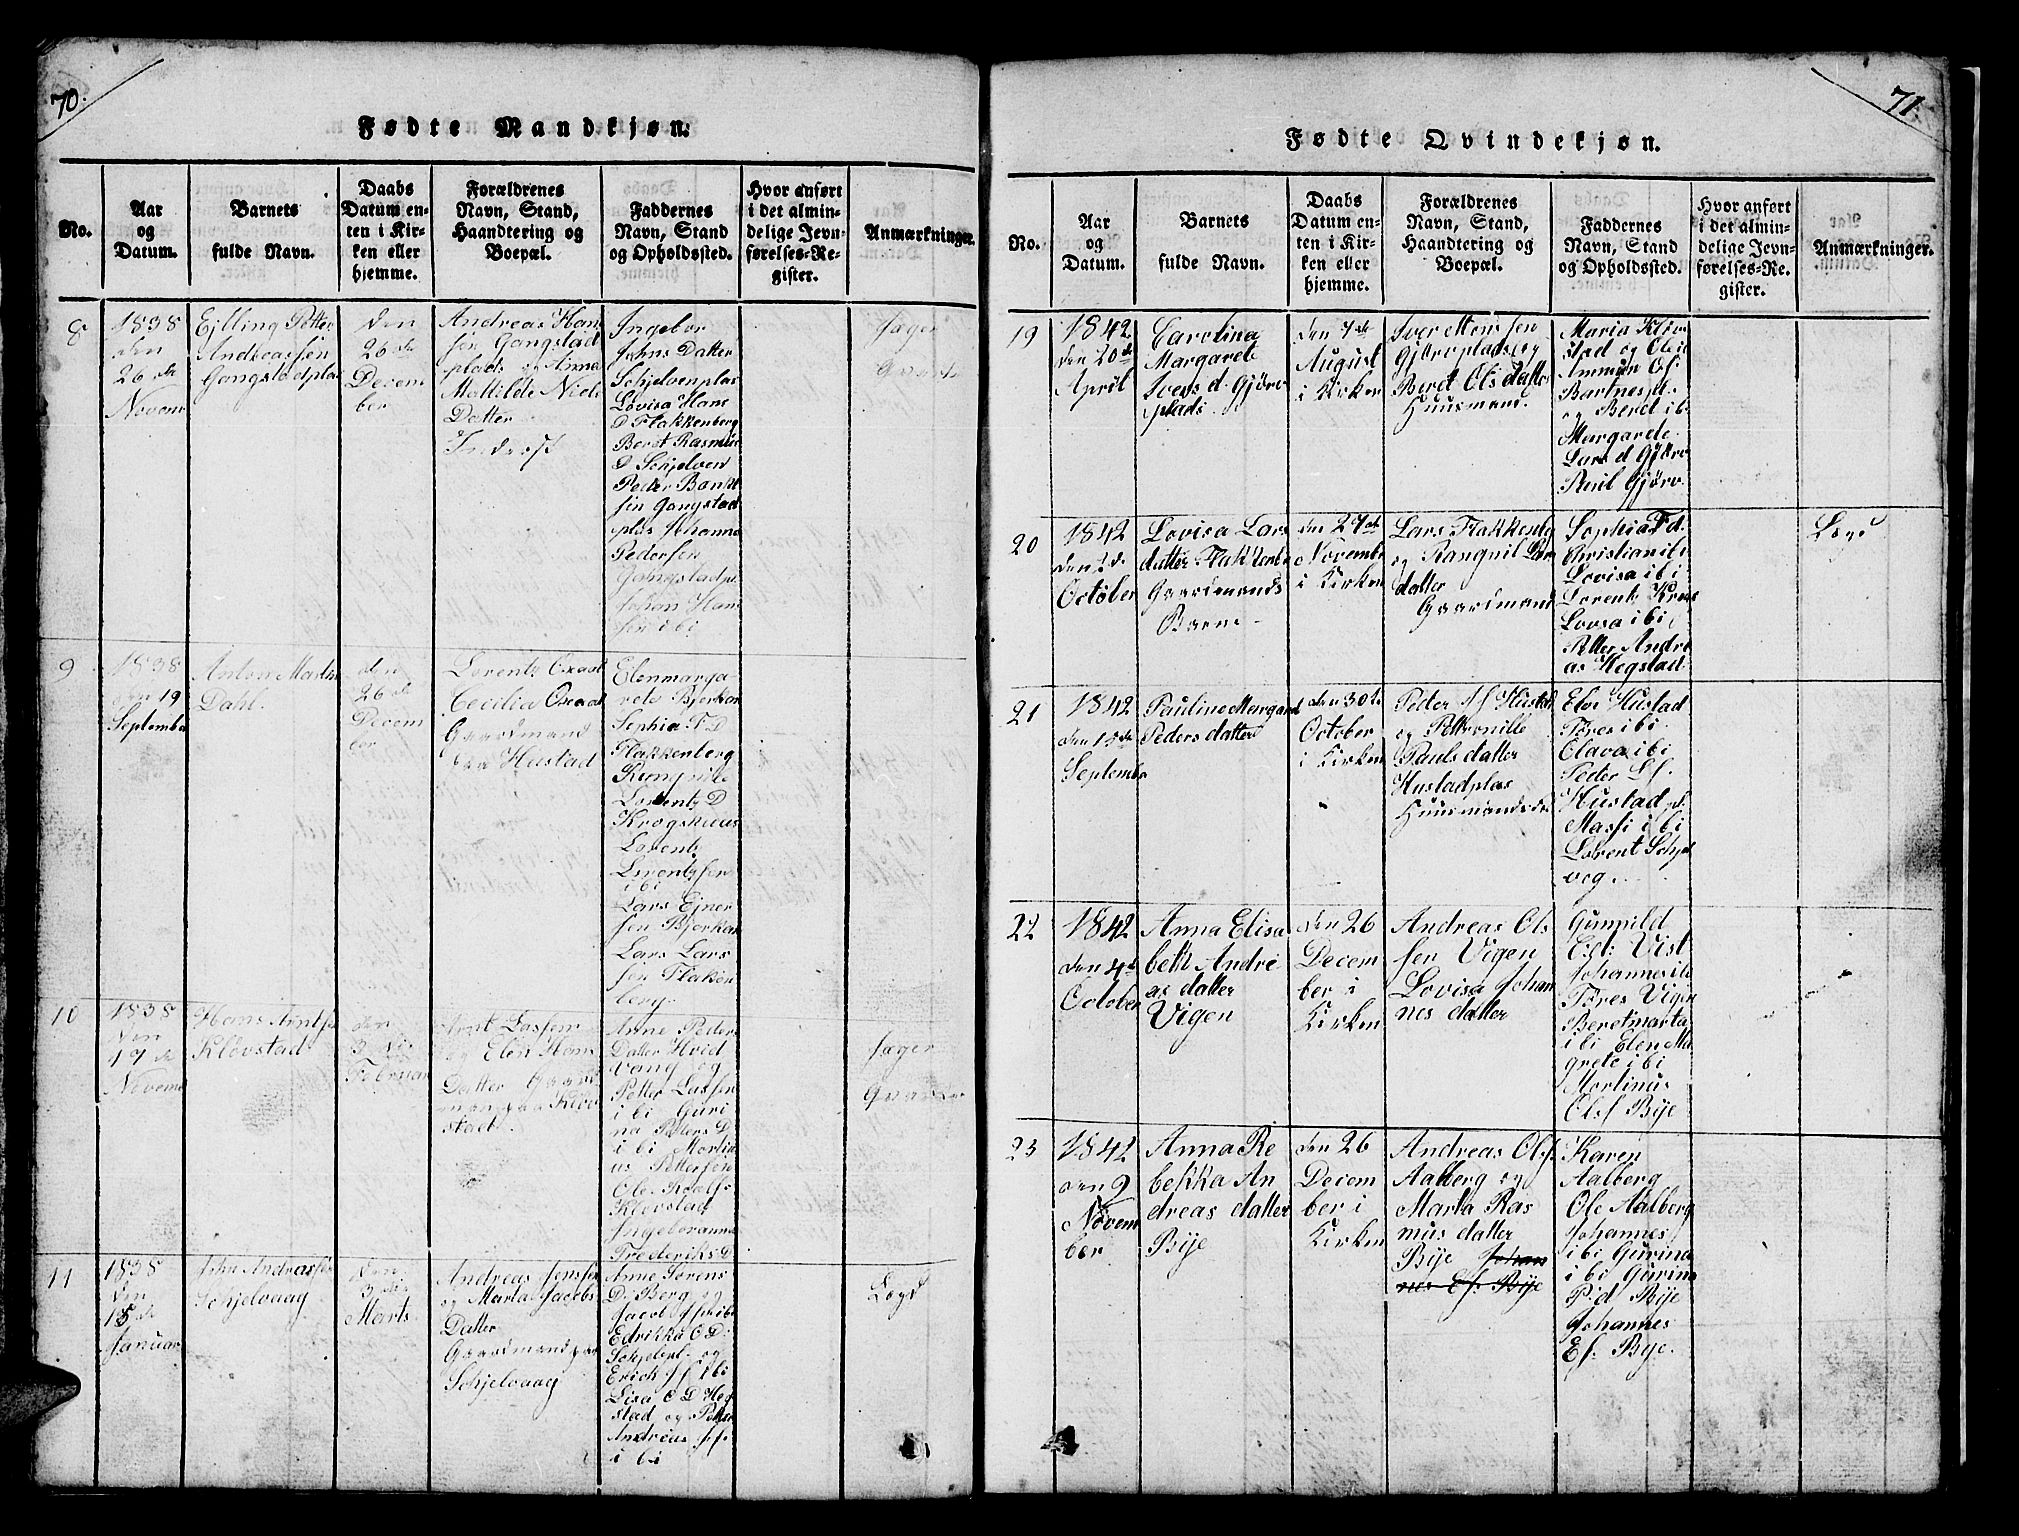 70.
Fødte Mandkjøn.
No.
Aar
og
Datum.
Barnets
fulde Navn.
Daabs
Datum en-
ten i Kir-
ken eller
hjemme.
Forældrenes
Navn, Stand,
Haandtering og
Boepæl.
Faddernes
Navn, Stand
og Opholdssted.
Hvor anført
i det almin-
delige Jevn-
førelses-Re-
gister.
Anmærkninger.
8
1838
den
26 de
Novem
Ejlling Petter
Andreassen
Gangstadplas
den
26 de
Decem
ber
Andreas Han
sen Gangstad
plads og Anna
Mathilde Niels
Datter
Inderst
Ingebor
Johns Datter
Schjelvenplas
Lovisa Hans
D Flakkenberg
Beret Rasmus
D Schjelven
Peder Bankt
sen Gangstad
plas Johanna
Pedersen
Gangstadpl
Johan Han
sen ibi
Jæger
9
1838
den 19
September
Anton Martin
Dahl.
den
26 de
Decem
ber
Lorentz Oxaal
Cecilia Oxaal
Gaardmand
paa Hustad
Elenmarga
rete Bjerkan
Sophia F D
Flakkenberg
Lorentz D
Krogshuus
Lorentz
Lorentzsen
ibi
Lars Ejner
sen Bjerkan
Lars Lars
sen Flaken
berg
10
1838
den
19 de
Novem
Hans Arntsen
Kløvstad
den
3 die
Februar
Arnt Lassen
og Elen Hans
Datter Gaard
man paa Kløv
stad.
Anne Peders
Datter Hvid
vang og
Petter Lassen
ibi Guri
na Peters D
ibi Martin
us Pettersen
Ole Roals
Kløvstad
Ingeboranna
Frederiks D
Jæger
11
1838
den
15 de
Januar
John Andreassen
Schjelvaag
den
3 die
Marts
Andreas Jenssen
og Marta Jacobs
Datter
Gaardmand paa
Schjelvaag
Anne Sørens
D. Berg og
Jacob J ibi
Edrikka O D.
Schjelv og
Erick J f ibi
Lisa O D Heg
stad og Petter
Andreas
ibi
Løgd
71.
Fødte Qvindekjøn.
No.
Aar
og
Datum.
Barnets
fulde Navn.
Daabs
Datum en-
ten i Kir-
ken eller
hjemme.
Forældrenes
Navn, Stand,
Haandtering og
Boepæl.
Faddernes
Navn, Stand
og Opholdssted.
Hvor anført
i det almin-
delige Jevn-
førelses-Re-
gister.
Anmærkninger.
19
1842
den 20 de
April
Carolina
Margarete
Ivers d. Gjørv
plads.
den 7 de
August
i Kirken
Iver Monssen
Gjørvplads og
Beret Ols datter
Huusmand.
Maria Kløv
stad og Ole
Ammon Of
Bartnespl.
og Beret ib
Margarete
Lars d Gjørv
Gjørv
20
1842
October
Lovisa Lars
datter Flakkenb
Gaardmands
Barn
den 27 de
Novemb
i Kirken
Lars Flakkenb
og Rangnil Lars
datter
Gaardmand
Sophia F d.
Christian ibi
Lovisa ibi
Lorent Kross
Lovisa ibi
Petter Andre
as Hegstad
Løgd
21
1842
den 15 de
Septemb
Pauline Margaret
Peders datter
den 30 te
October
i Kirken
Peder Hustad
og Petternille
Pauls datter
Hustadplas
Huusmands
Elvi Hustad
Tøres ibi
Elava ibi
Peder Lf.
Hustad pl.
Massi ibi
Lorent Schjel
vog.
22
1842
den 4 d
October
Anna Elisa
beth Andre
as datter
Vigen
den 26
Decem
ber i
Kirken
Andreas Ols
sen Vigen
Lovisa Johan
nes datter
Gunnild
Vist
Johannes
Tøres Vigen
Beretmarta
ibi Elen Ma
grete ibi
Martinus
Olsf Bye
23
1842
den 9
Novem
ber
Anna Re
bekka An
dreas datter
Bije
den 26
Decem
ber i
Kirken
Andreas Olsf.
Aalberg og
Marta Ras
mus datter
Bije Johan
nes Ef. Bije
Karen
Aalberg
Ole Aalberg
Johannes
ibi Gurina
ibi Gurina
P. d Bije
Johannes
Ef. Bije.